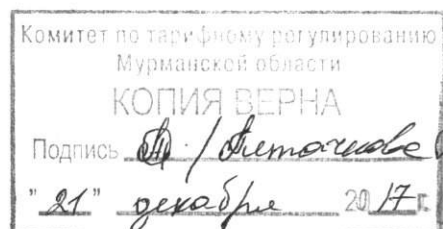 Комитет по тарифному регулированию
Мурманской области
КОПИЯ ВЕРНА
Подпись
"21" декабря 2017 г.